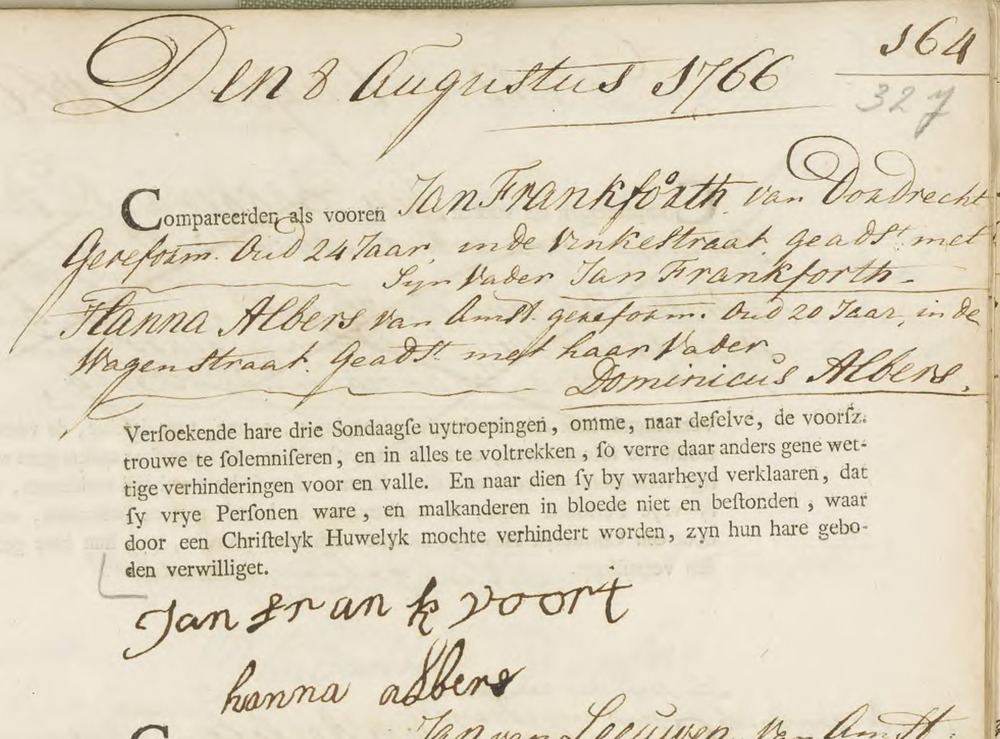 Den 8 Augustus 1766
164
327
Compareerden als vooren Jan Frankforth van Dordrecht
Gereform. Oud 24 Jaar, in de Vinkestraat. geadst. met
Syn Vader Jan Frankforth.
Hanna Albers van Amst. gereform. Oud 20 Jaar, in de
Wagenstraat. Geadst. met haar Vader,
Dominicus Albers.
Verſoekende hare drie Sondaagſe uytroepingen, omme, naar deſelve, de voorſz.
trouwe te ſolemniſeren, en in alles te voltrekken, ſo verre daar anders gene wet-
tige verhinderingen voor en valle. En naar dien ſy by waarheyd verklaaren, dat
ſy vrye Perſonen ware, en malkanderen in bloede niet en beſtonden, waar
door een Chriſtelyk Huwelyk mochte verhindert worden, zyn hun hare gebo-
den verwilliget.
Jan frank voort
hanna albers
Jan van Leeuwen van Amst.